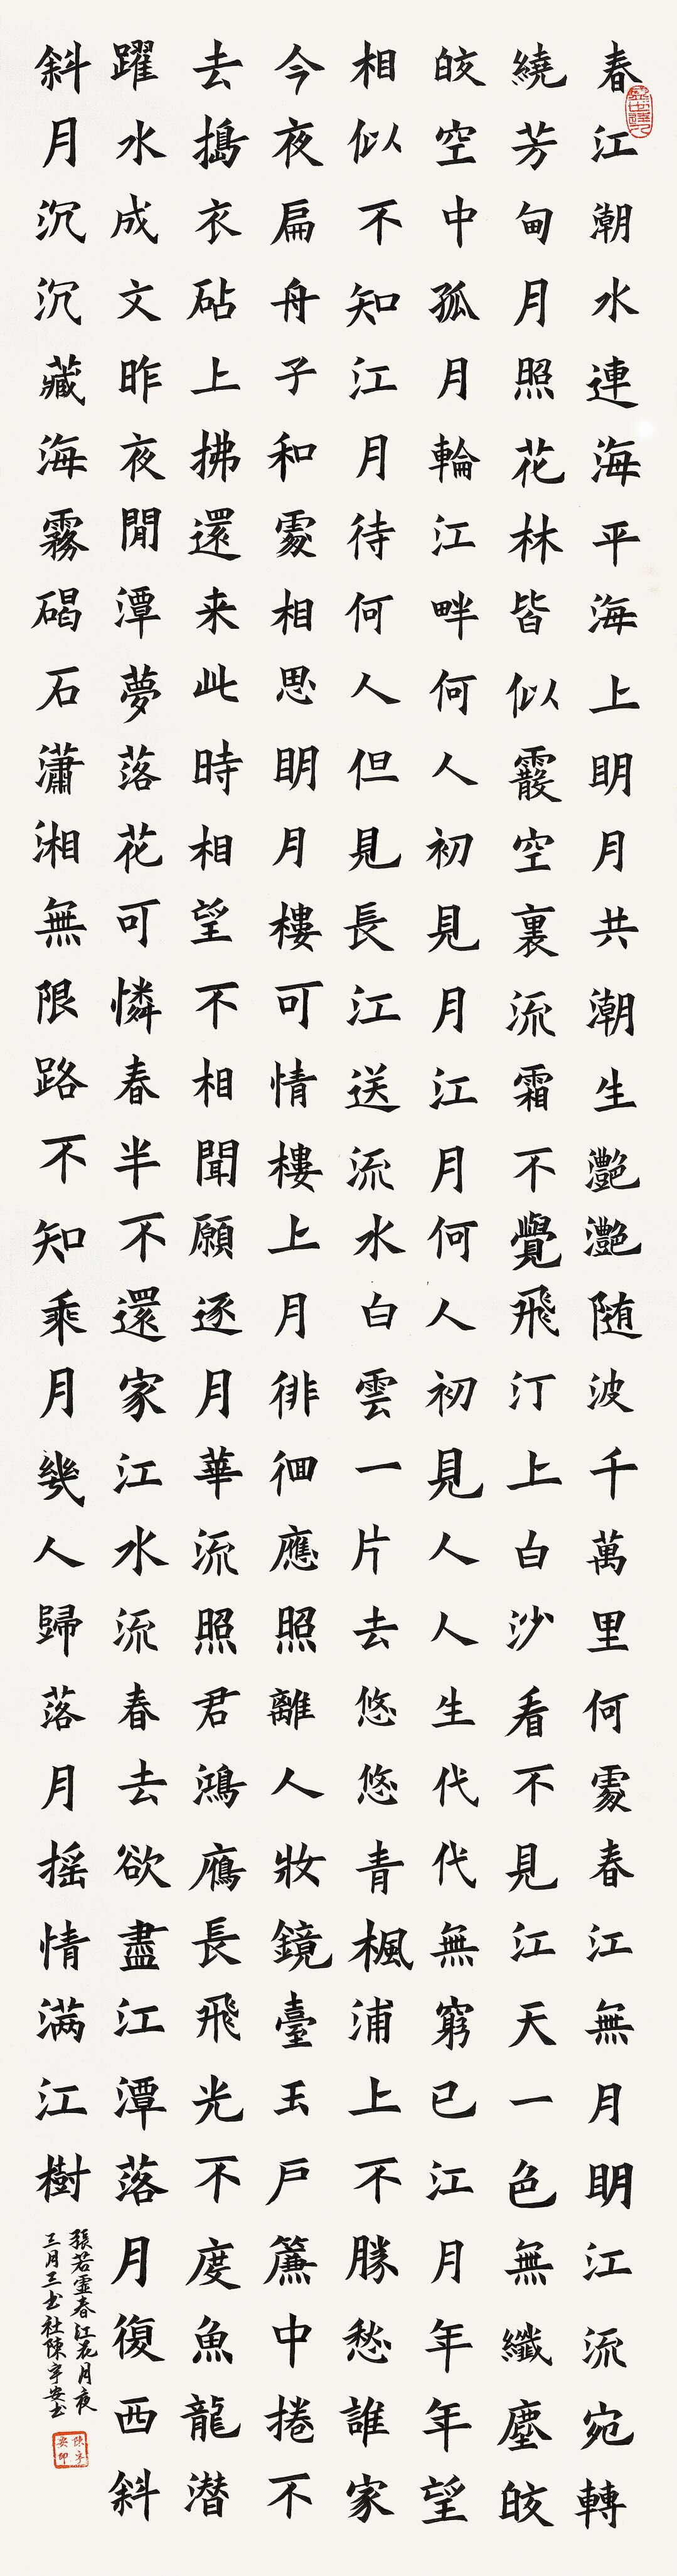 春江潮水連海平海上明月共潮生灧灧随波千萬里何處春江無月明江流宛轉
繞芳甸月照花林皆似霰空裏流霜不覺飛汀上白沙看不見江天一色無纖塵皎
皎空中孤月輪江畔何人初見月江月何人初見人人生代代無窮已江月年年望
相似不知江月待何人但見長江送流水白雲一片去悠悠青楓浦上不勝愁誰家
今夜扁舟子和處相思明月樓可情樓上月徘徊應照離人妝鏡臺玉戶簾中捲不
去搗衣砧上拂還来此時相望不相聞願逐月華流照君鴻鴈長飛光不度魚龍潜
躍水成文昨夜閒潭夢落花可憐春半不還家江水流春去欲盡江潭落月復西斜
斜月沉沉藏海霧碣石瀟湘無限路不知乘月幾人歸落月摇情满江樹
張若虛春江花月夜
三月三书社陳宇安书
陳宇安印